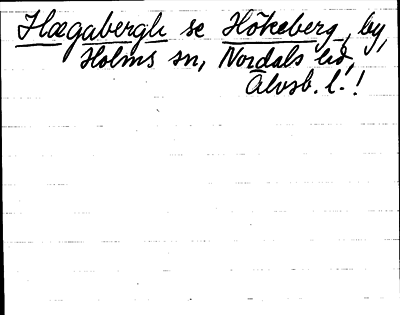 Hægabergh se Hökeberg, by,
Holms sn, Nordals hd,
Älvsb. l.!